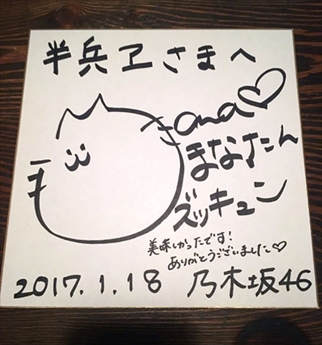 半兵ヱさまへ
ana♡
まなたん
ズッキュン
美味しかったです!
ありがとうございました♡
2017.1.18 乃木坂46